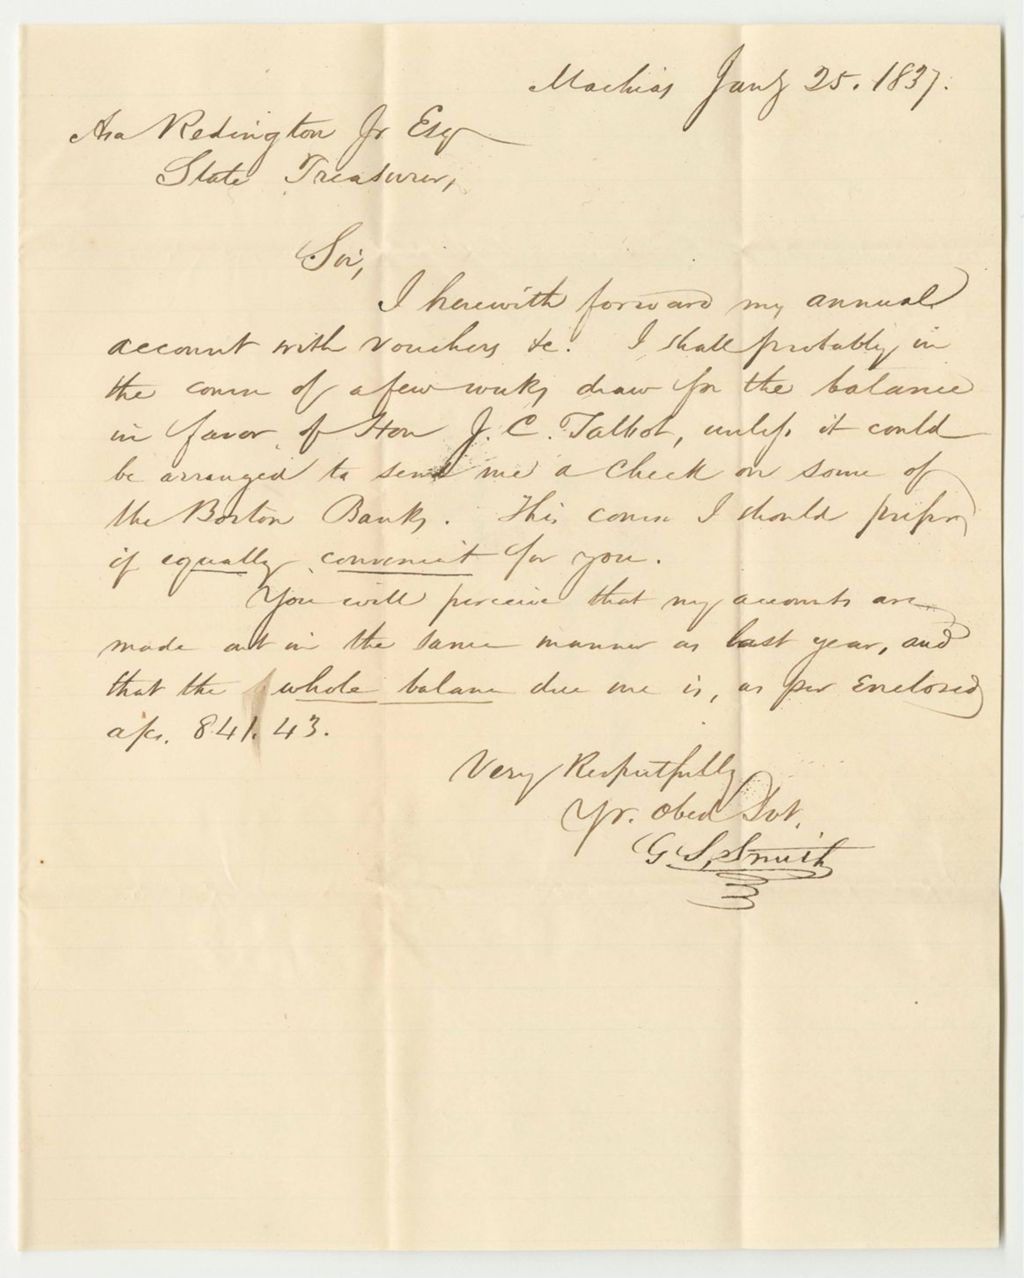 Machias Jany 25. 1837.
Asa Redington Jr Esq
State Treasurer,
Sir,
I herewith forward my annual
account with vouchers &c. I shall probably in
the course of a few weeks draw for the balance
in favor of Hon J. C. Talbot, unless it could
be arranged to send me a check on some of
the Boston Banks. This course I should prefer
if equally convenient for you.
You will perceive that my accounts are
made out in the same manner as last year, and
that the whole balance due me is, as per Enclosed
a/c. 841.43.
Very Respectfully
Yr. Obed Svt.
G. S. Smith